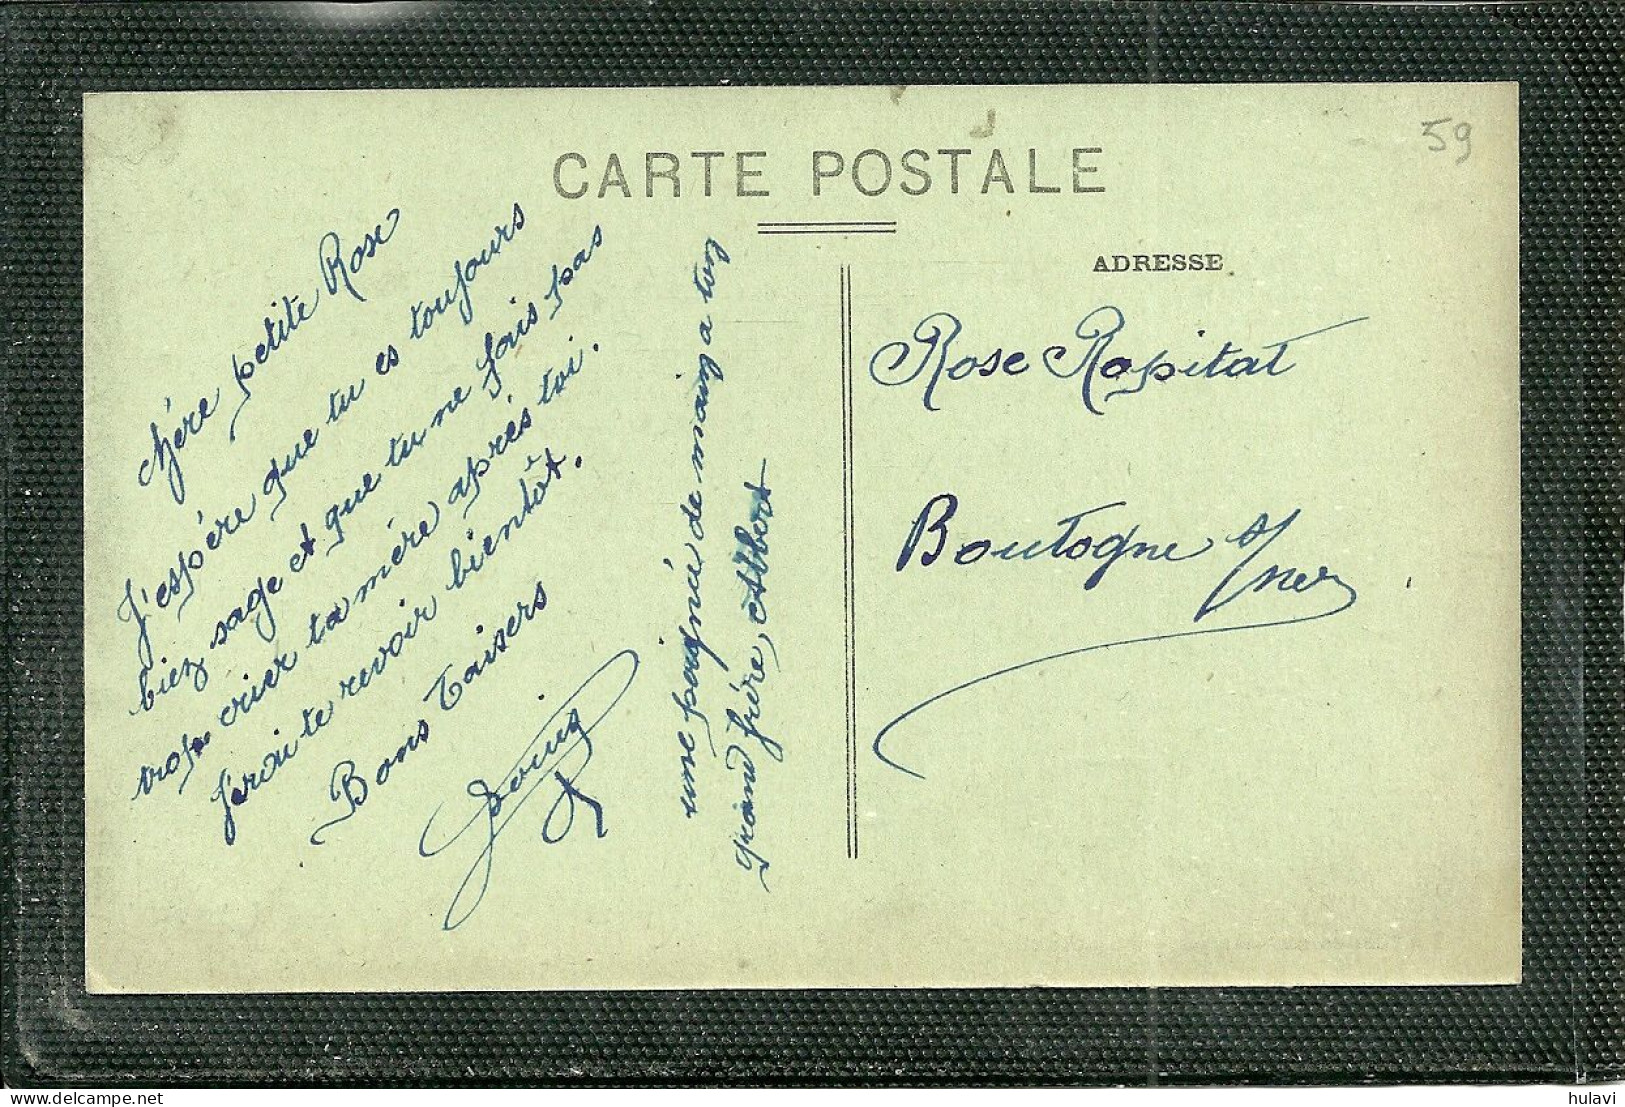 CARTE POSTALE
59
ADRESSE
chère petite Rose
J'espère que tu es toujours
biez sage et que tu ne fais pas
trop crier ta mère après toi.
ferai te revoir bientôt.
Bons Baisers
Louis
une poignée de mainz a toz
grand frère, Albert
Rose Ropitat
Boulogne s/mer
hulavi